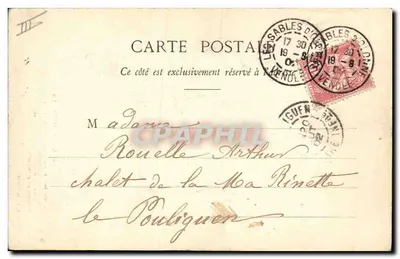 III
CARTE POSTALE
Ce côté est exclusivement réservé à l'
LES SABLES D'OLONNE
17 30
19 -8
VENDÉE
SABLES D'OLONNE
17 30
19 -8
VENDÉE
Madame
Rouelle Arthur
chalet de la Ma Rinette
le Pouliguen
CPAPHIL.COM